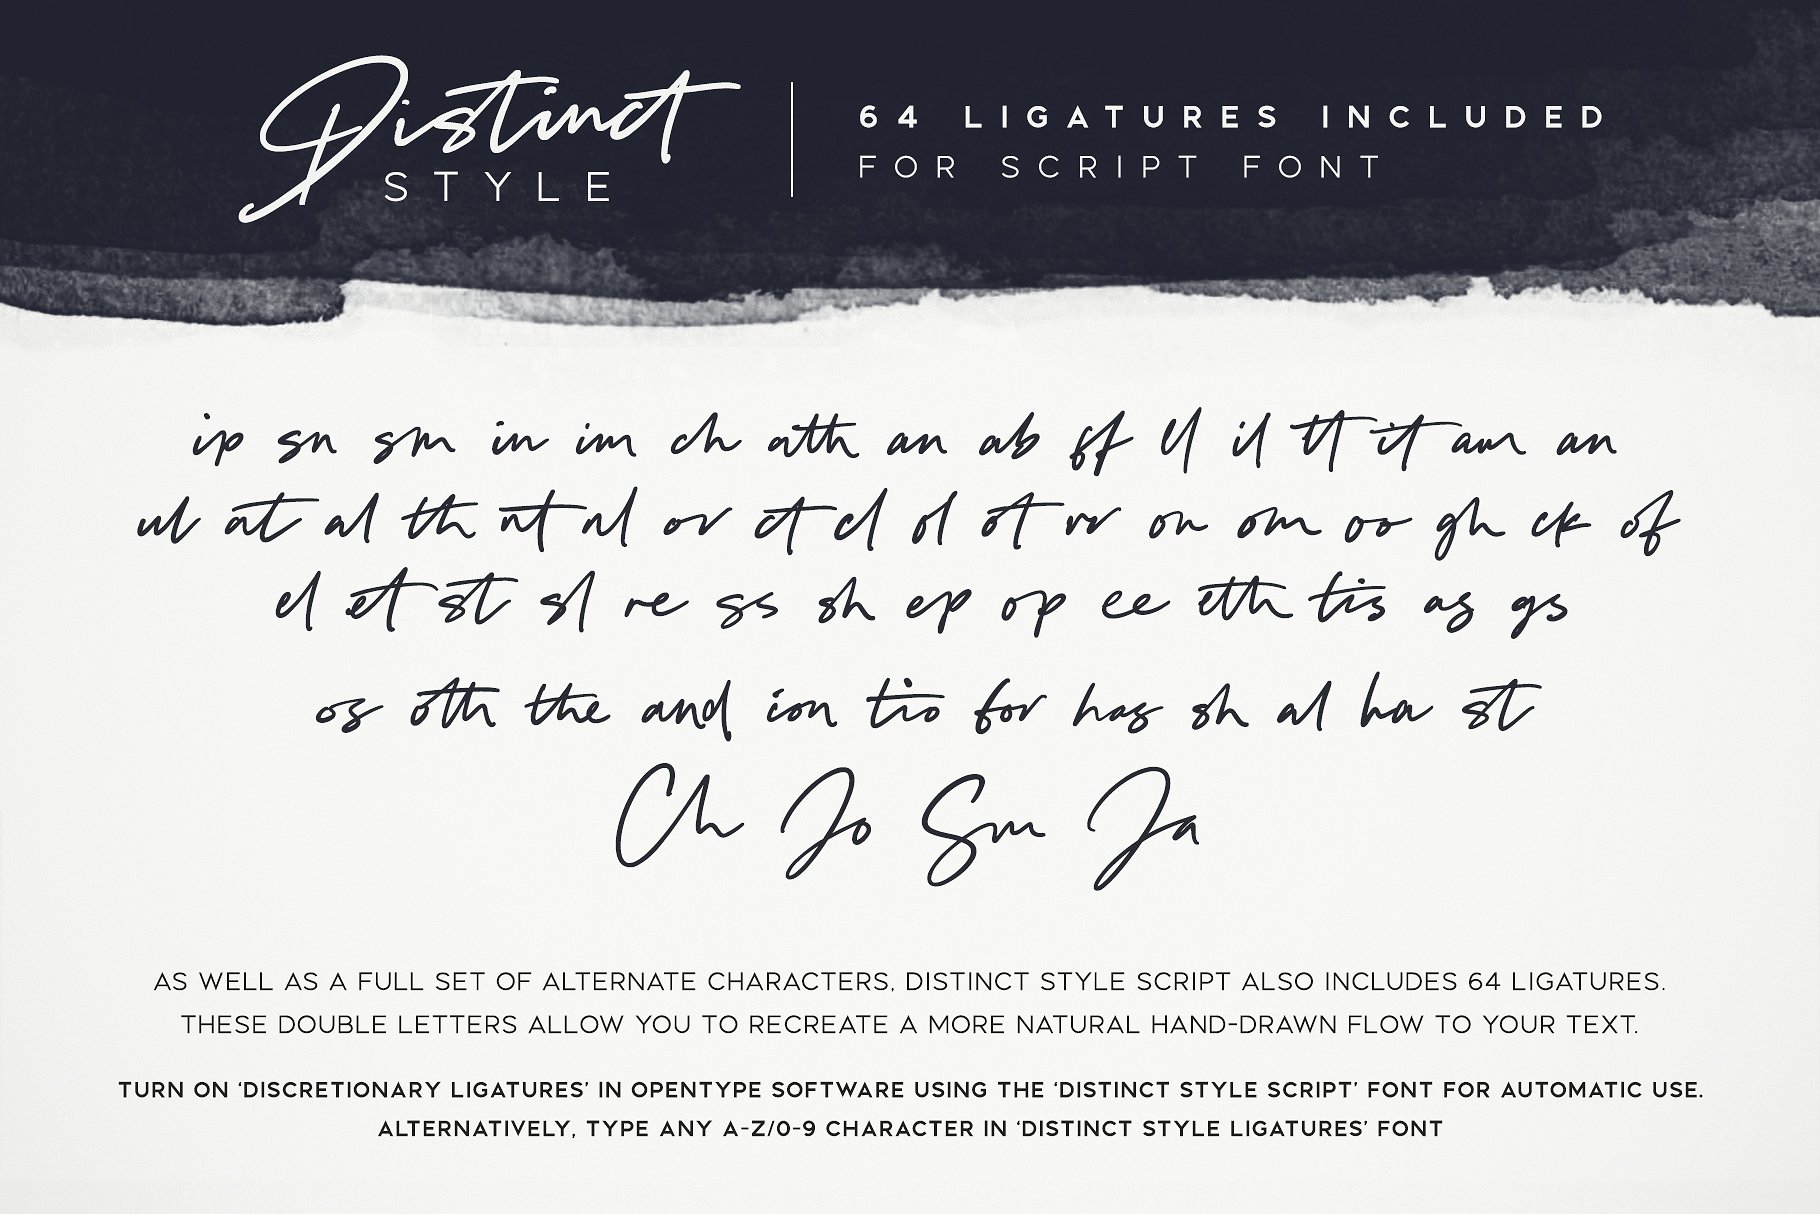 Distinct
STYLE
64 LIGATURES INCLUDED
FOR SCRIPT FONT
ip sn sm in im ch ath an ab ff ll il tt it am an
ul at al th nt nl or ct cl ol ot rr on om oo gh ck of
el et st sl re ss sh ep op ee eth tis as gs
os oth the and ion tio for has sh al ha st
Ch Jo Sm Ja
AS WELL AS A FULL SET OF ALTERNATE CHARACTERS, DISTINCT STYLE SCRIPT ALSO INCLUDES 64 LIGATURES.
THESE DOUBLE LETTERS ALLOW YOU TO RECREATE A MORE NATURAL HAND-DRAWN FLOW TO YOUR TEXT.
TURN ON ‘DISCRETIONARY LIGATURES’ IN OPENTYPE SOFTWARE USING THE ‘DISTINCT STYLE SCRIPT’ FONT FOR AUTOMATIC USE.
ALTERNATIVELY, TYPE ANY A-Z/0-9 CHARACTER IN ‘DISTINCT STYLE LIGATURES’ FONT